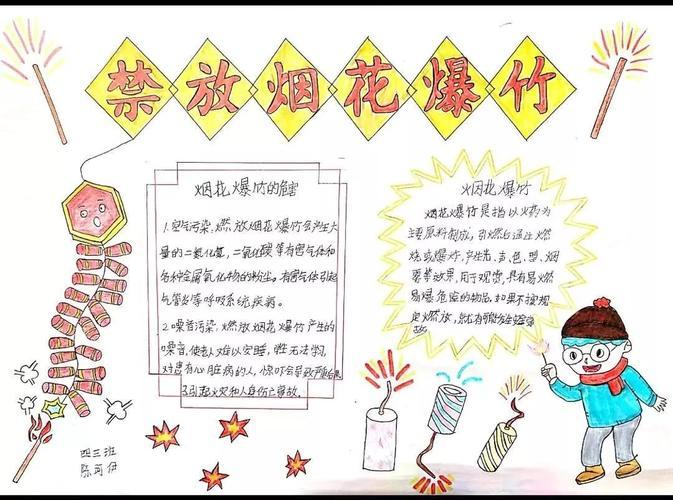 禁放烟花爆竹
烟花爆竹的危害
1.空气污染,燃放烟花爆竹会产生大
量的二氧化氮,二氧化碳等有害气体和
各种金属氧化物的粉尘。有害气体引起
气管炎等呼吸系统疾病。
2.噪音污染,燃放烟花爆竹产生的
噪音,使老人难以安睡,学生无法学习,
对患有心脏病的人,惊吓会导致严重后果
3.引起火灾和人身伤亡事故。
烟花爆竹
烟花爆竹是指以火药为
主要原料制成,引燃后通过燃
烧或爆炸,产生光、声、色、型、烟
雾等效果,用于观赏,具有易燃
易爆危险的物品,如果不按规
定燃放,就有可能发生安全事
故
四三班
陈可伊